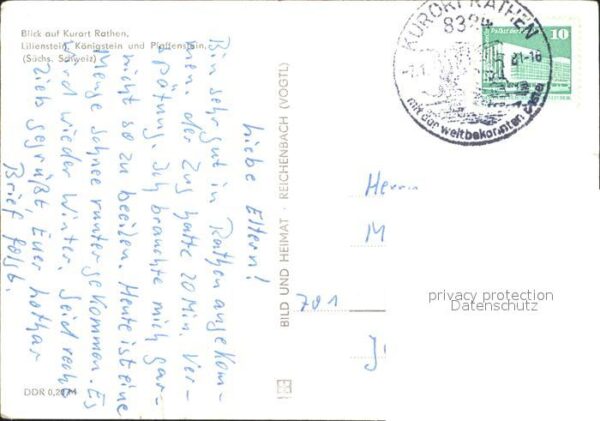 Blick auf Kurort Rathen,
Lilienstein, Königstein und Pfaffenstein.
(Sächs. Schweiz)
Liebe Eltern!
Bin sehr gut in Rathen angekom-
men. der Zug hatte 20 Min. Ver-
spätung. Ich brauchte mich gar-
nicht so zu beeilen. Heute ist eine
Menge Schnee runter gekommen. Es
wird wieder Winter. Seid recht
lieb gegrüßt, Euer Lothar
Brief folgt.
DDR 0,20 M
BILD UND HEIMAT · REICHENBACH (VOGTL)
KURORT RATHEN
mit der weltbekannten
10
Herrn
M
701
J
privacy protection
Datenschutz